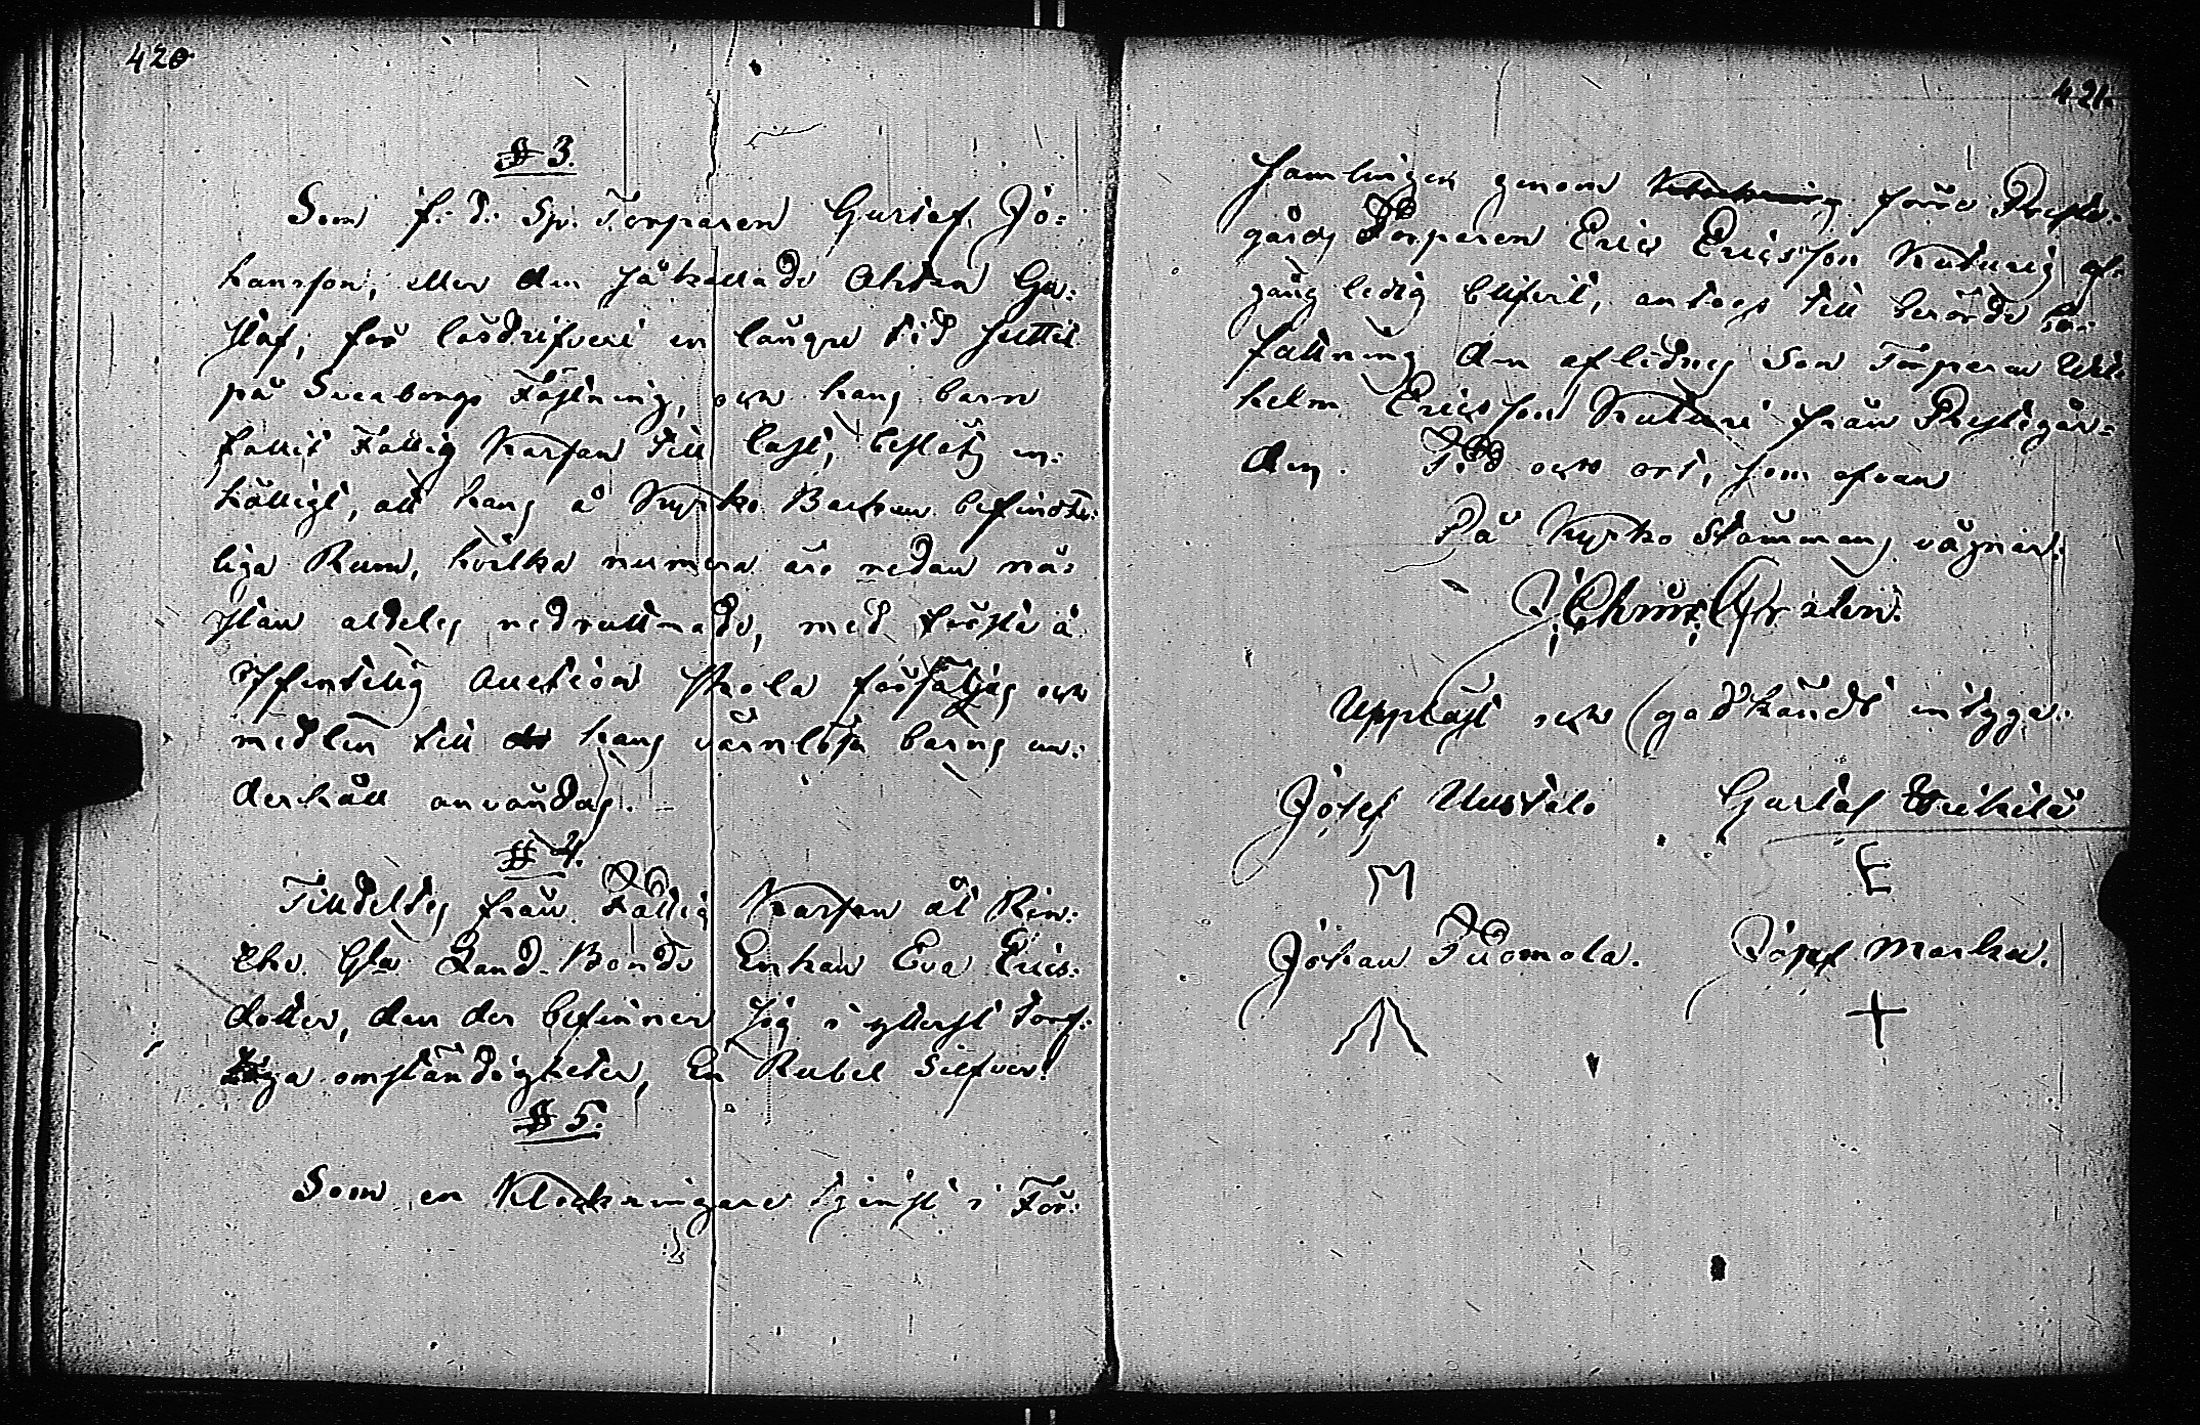 420.
§ 3.
Som f. d. Sp. Torparen Gustaf Jo-
hansson, eller den så kallade Ahdan Gu-
staf, för lösdrifveri en längre tid suttit
på Sveaborgs Fästning, och hans barn
fallit Fattig Kassan till last, beslöts en-
hälligt, att hans å Kyrko Backen befindte-
liga Rum, hvilka numera äro nedan nä-
stan aldeles nedruttnade, med första å
offentelig Auction skola försäljas och
medlen till hans värnlösa barns un-
derhåll användas.
§ 4.
Tilldeltes från Fattig Kassan åt
Land-Bonde Enkan Eva Erics-
dotter, den der befinner sig i ytterst torf-
tiga omständigheter, En Rubel Silfver.
§ 5.
Som en Klockringare tjenst i För-
421.
samlingen genom förre Preste-
gårds Torparen Eric Ericsson Kuturis af-
gång ledig blifvit, antogs till berörde be-
fattning den aflidnes Son Torparen Wil-
helm Ericsson Kuturi från Prestegår-
den. Tid och ort, som ofvan
På Kyrko Stämmans vägnar:
Uppläst och godkändt intyga:
Josef Uustalo Gustaf Heikilä
M E
Johan Tuomola. Josef Marku.
+